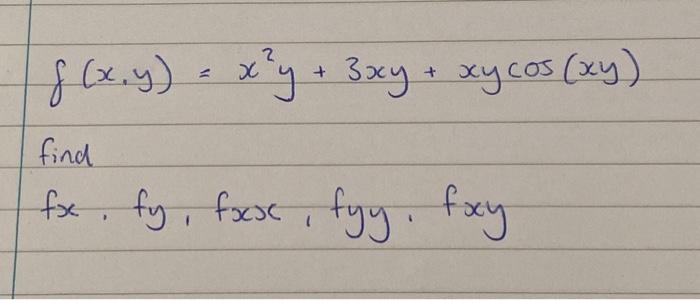 f(x,y) = x²y + 3xy + xycos(xy)
find
fx, fy, fxx, fyy, fxy